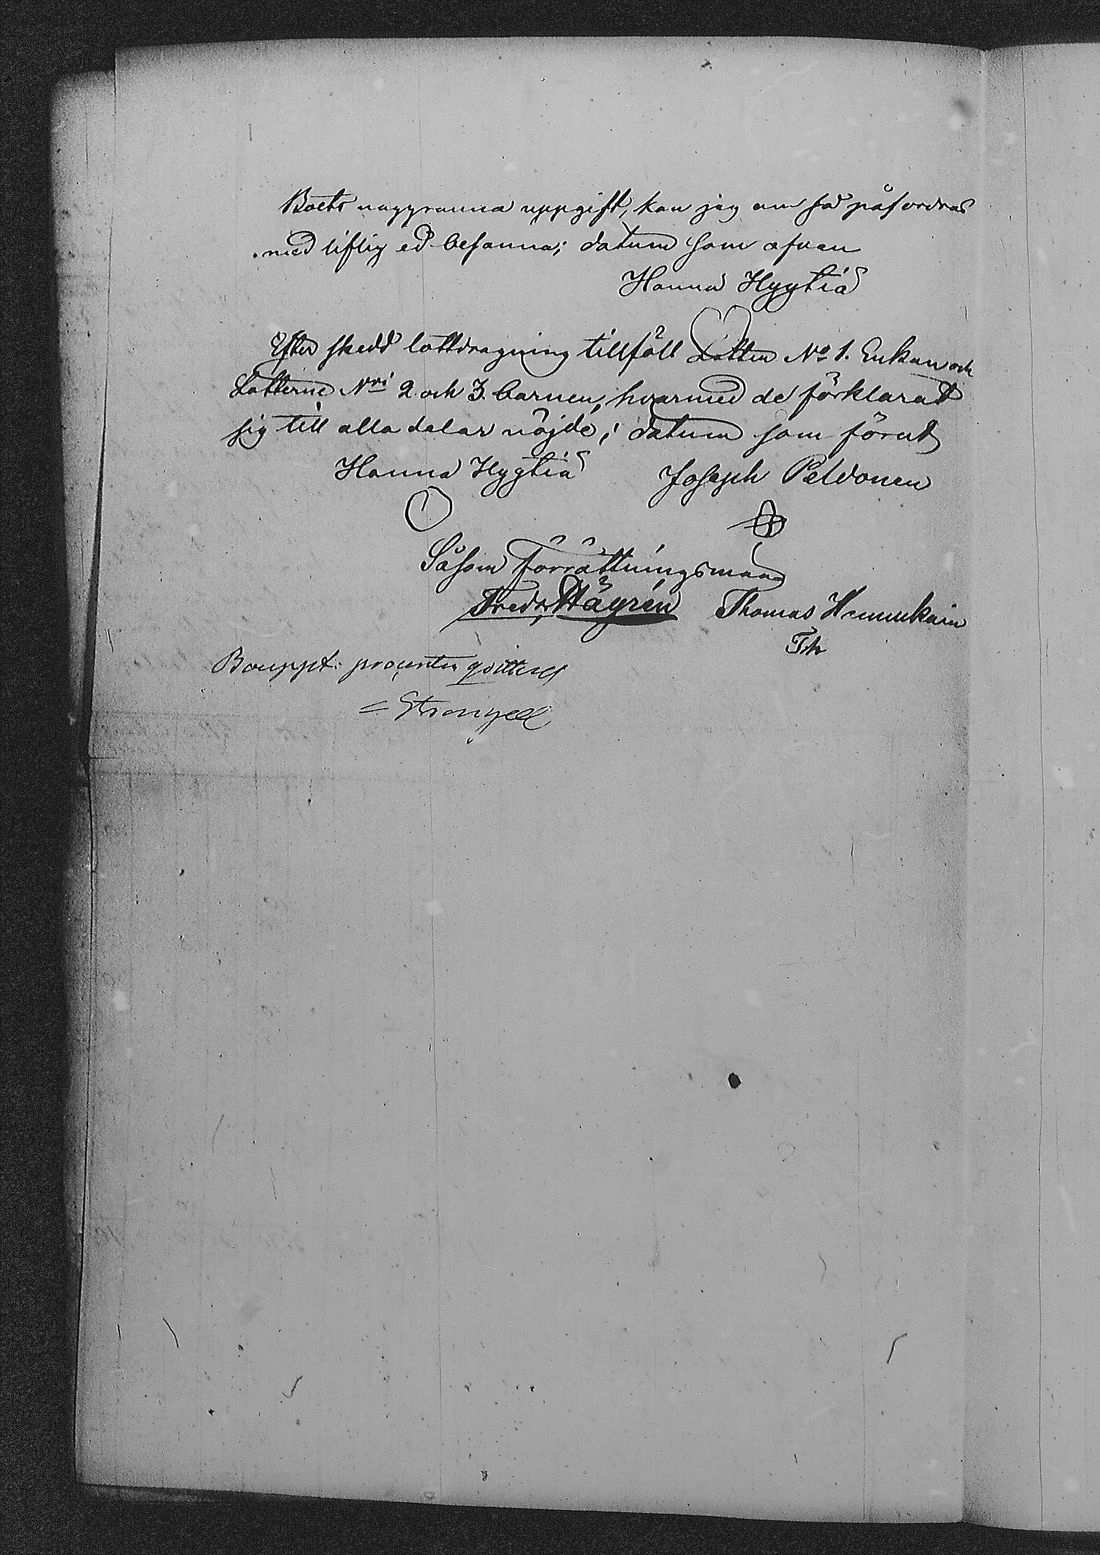 Boets noggranna uppgift, kan jag om så påfordras
med liflig ed besanna; datum som ofvan
Hanna Hygtiä
Efter skedd lottdragning tillföll Lotten No 1. Enkan och
Lotterne Nri 2 och 3. barnen, hvarmed de förklarat
sig till alla delar nöjde; datum som förut
Hanna Hygtiä Joseph Peldonen
Såsom Förrättningsmann
Fredr. Häyrén Thomas
Th
Bouppt. procenten qvitterd